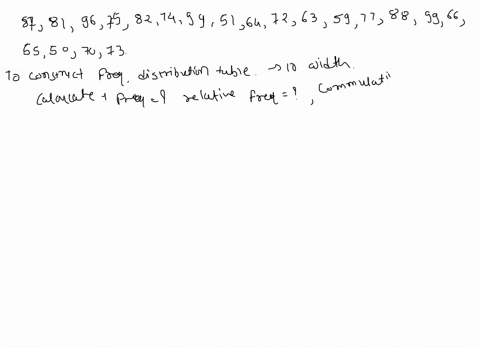 87, 81, 96, 75, 82, 74, 99, 51, 64, 72, 63, 59, 77, 88, 99, 66,
55, 50, 70, 73.
To construct freq. distribution table. → 10 width.
Calculate + freq = ? relative freq = ?, Commulati